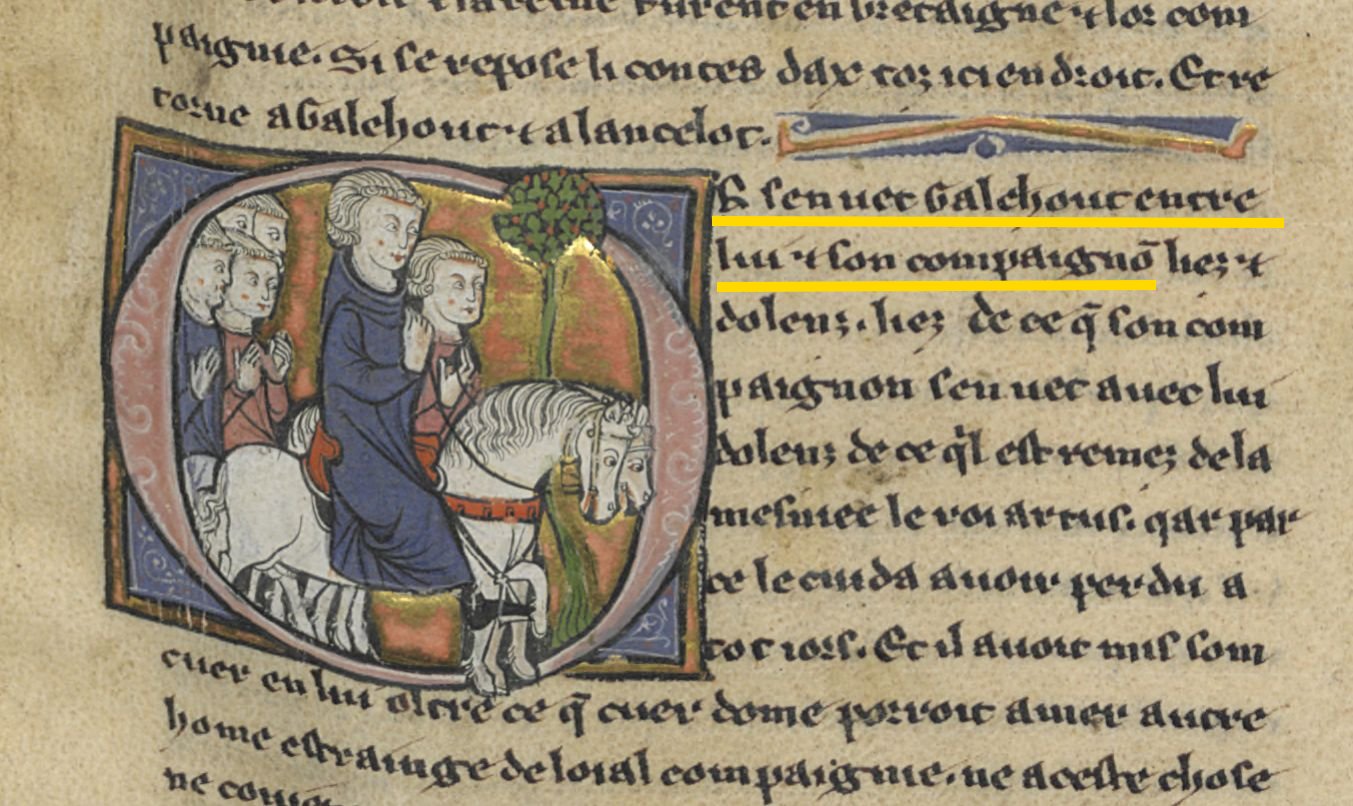 la reine furent en bretaigne ⁊ lor com
paignie. Si se repose li contes dax toz ici endroit. Et re
torne a Galehout ⁊ a lancelot.
OR sen uet Galehout entre
lui ⁊ son compaignō liez ⁊
dolenz. liez de ce q̄ son com
paignon sen uet auec lui
dolenz de ce qͥl est remez de la
mesniee le roi artus. qar par
ce le cuida auoir perdu a
tot iors. Et il auoit mis som
cuer en lui oltre ce q̄ cuer dome porroit amer autre
home estrainge de loial compaignie. ne a ceste chose
ne